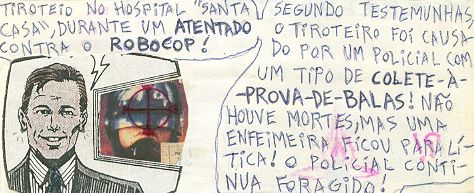 TIROTEIO NO HOSPITAL "SANTA
CASA", DURANTE UM ATENTADO
CONTRA O ROBOCOP!
SEGUNDO TESTEMUNHAS
O TIROTEIRO FOI CAUSA-
DO POR UM POLICIAL COM
UM TIPO DE COLETE-À-
-PROVA-DE-BALAS! NÃO
HOUVE MORTES, MAS UMA
ENFEIMEIRA FICOU PARALÍ-
TICA! O POLICIAL CONTI-
NUA FORAGIDO!